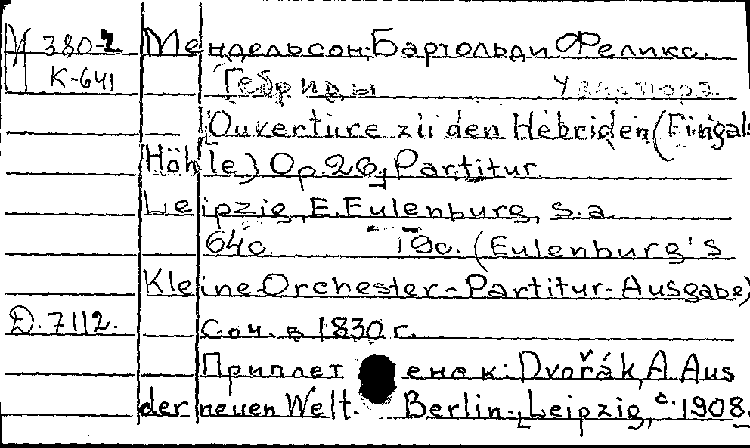 И 380-2 Мендельсон, Бартольди Феликс.
К-641 Гебриды Увертюра.
Ouvertüre zu den Hebriden (Fingals
Höhle) Op. 26, Partitur
Leipzig, E. Eulenburg, s.a.
64с. 19с. (Eulenburg's
Kleine Orchester-Partitur-Ausgabe)
D. 7112. Соч. в 1830 г.
Приплетено к: Dvořák, A. Aus
der neuen Welt. Berlin-Leipzig, c. 1908.